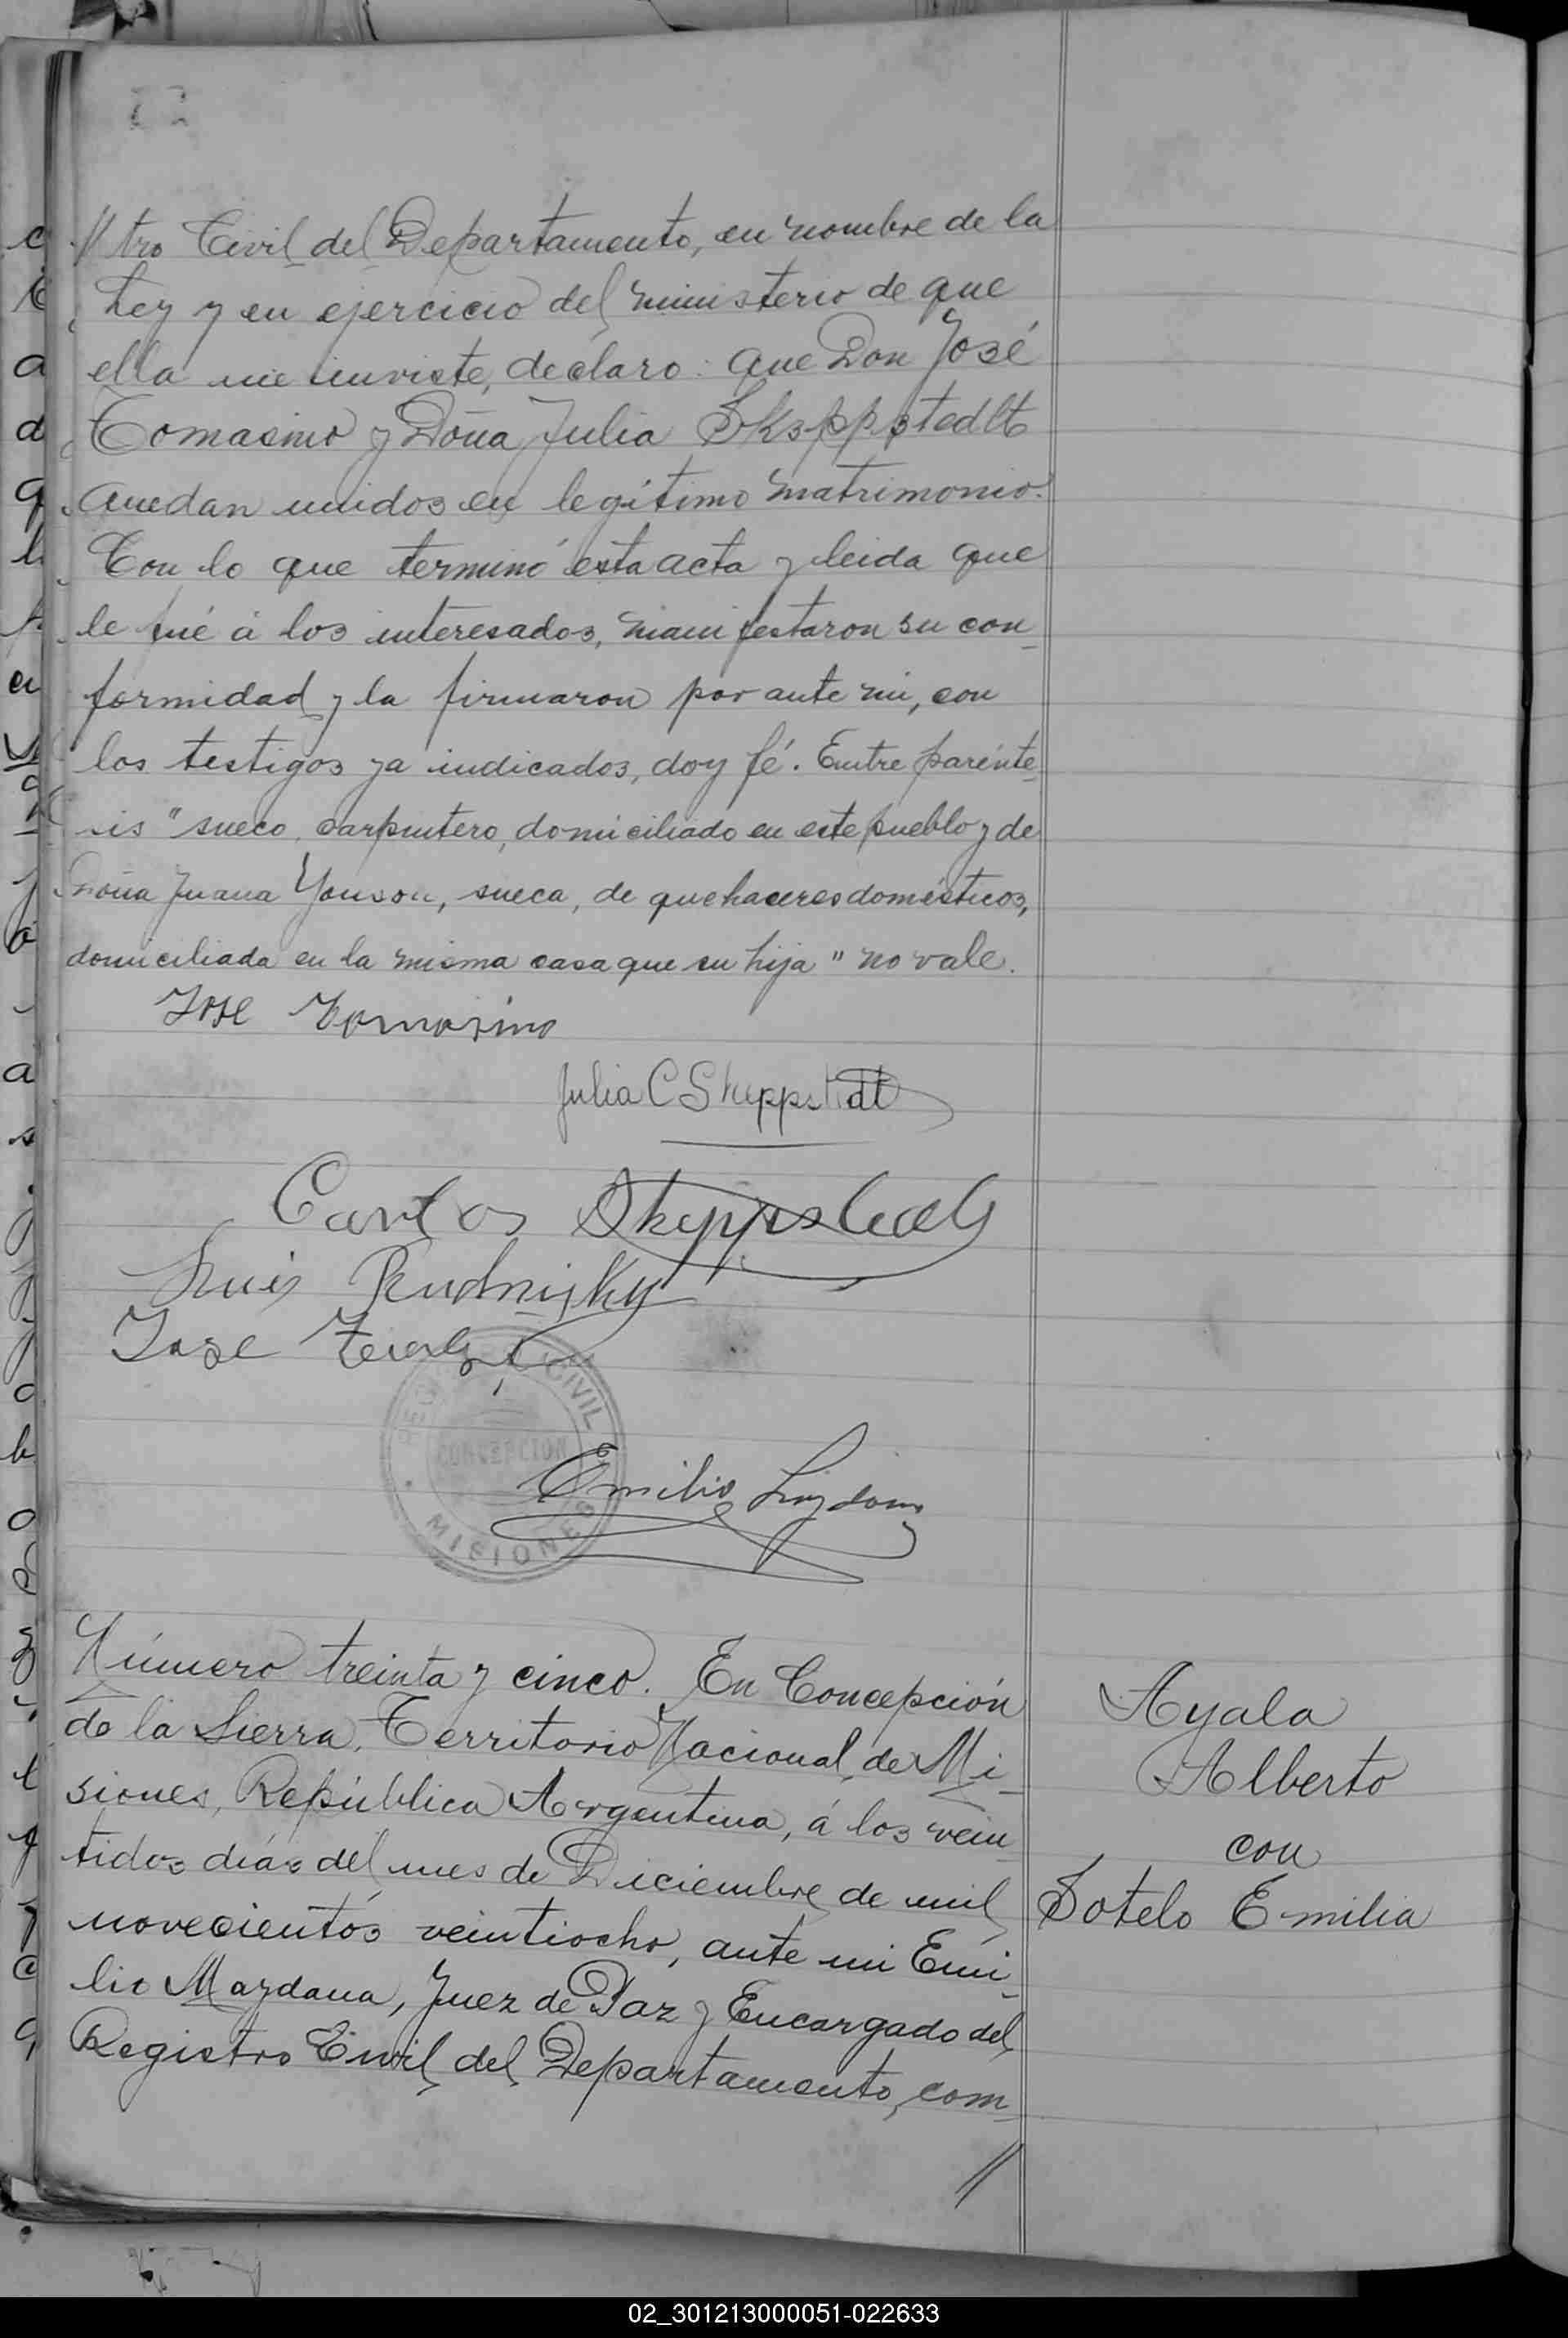 // tro Civil del Departamento, en nombre de la
Ley y en ejercicio del ministerio de que
ella me inviste, declaro: que Don José
Tomasino y Doña Julia Skeppstedlt
quedan unidos en legítimo matrimonio.
Con lo que terminó esta acta y leida que
le fué á los interesados, manifestaron su con_
formidad y la firmaron por ante mi, con
los testigos ya indicados, doy fé. Entre parénte_
sis "sueco, carpintero, domiciliado en este pueblo y de
Doña Juana Yonson, sueca, de quehaceres domésticos,
domiciliada en la misma casa que su hija" no vale.
Jose Tomasino
Julia C Skeppstedt
Carlos Skeppstedt
Luis Rudnisky
Jose
REGISTRO CIVIL
CONCEPCION
MISIONES
Emilio
Número treinta y cinco. En Concepción
de la Sierra, Territorio Nacional de Mi_
siones, República Argentina, á los vein_
tidos días del mes de Diciembre de mil
novecientos veintiocho, ante mi Emi_
lio Maydana, Juez de Paz y Encargado del
Registro Civil del Departamento, com_
//
Ayala
Alberto
con
Sotelo Emilia
02_301213000051-022633